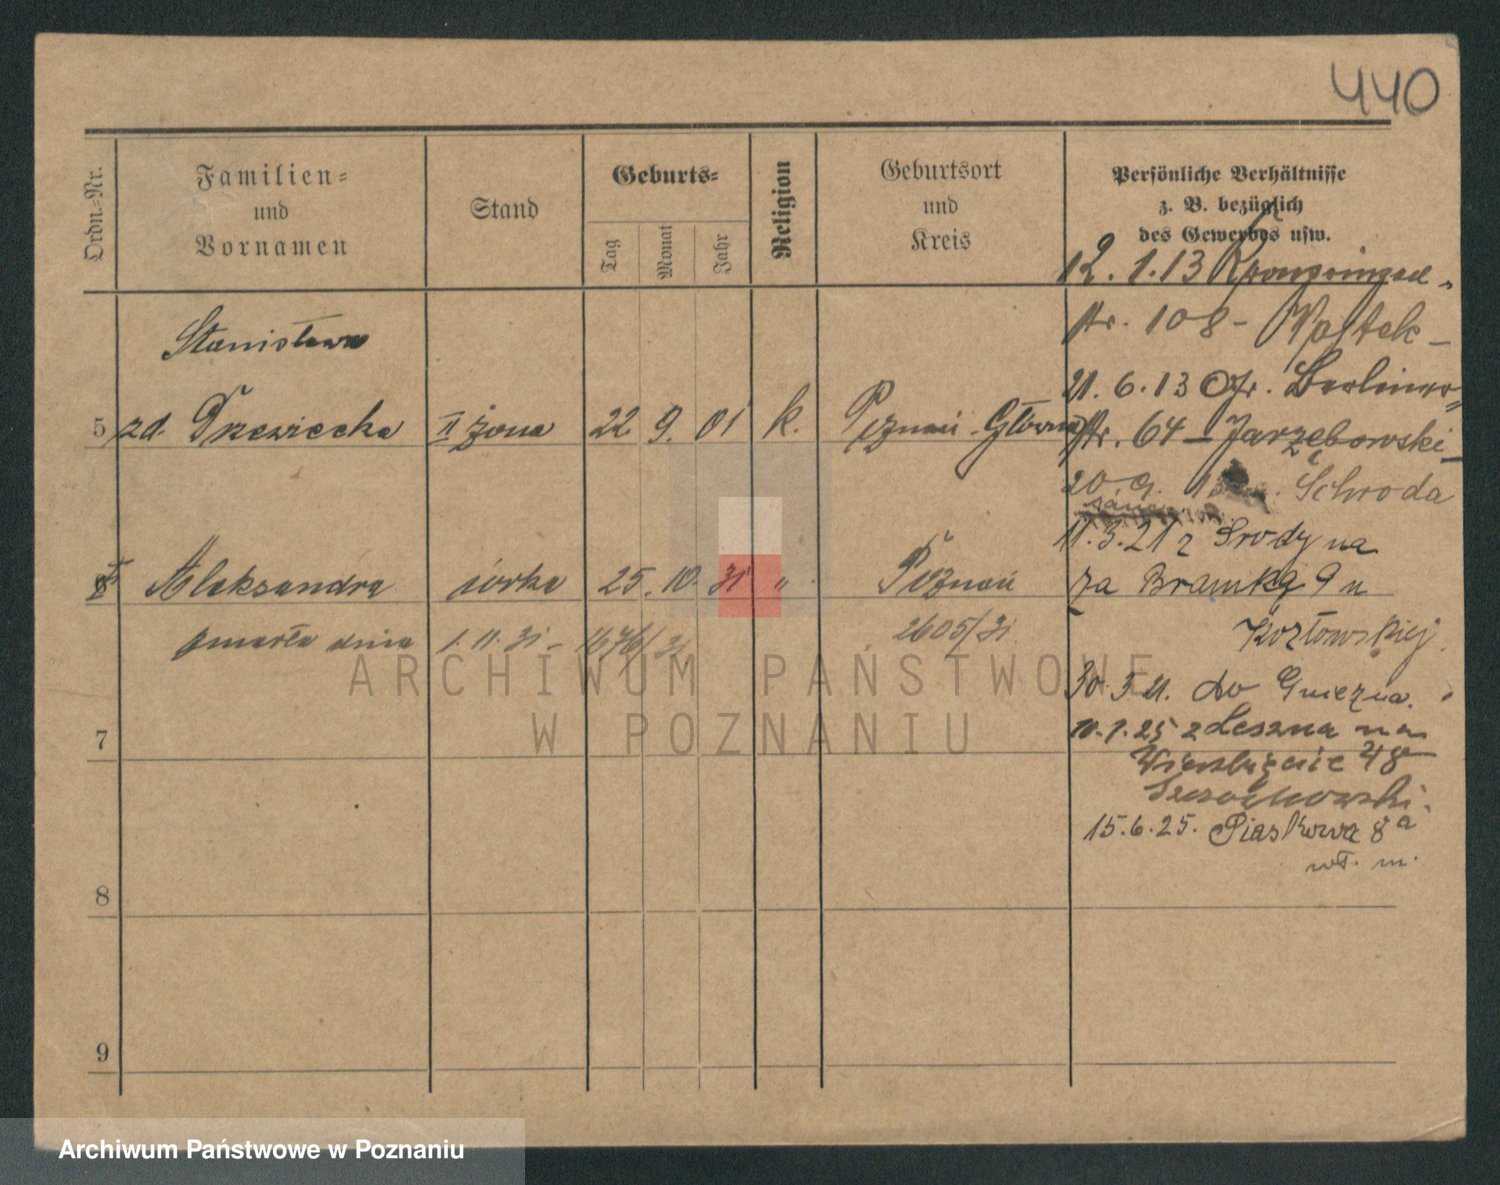 440
Ordn.-Nr.
Familien-
und
Vornamen
Stand
Geburts-
Tag
Monat
Jahr
Religion
Geburtsort
und
Kreis
Persönliche Verhältnisse
z. B. bezüglich
des Gewerbes usw.
12. 1. 13 Kronprinzen-
str. 108 -
21. 6. 13 Ofr. Berliner-
str. 64 - Jarzębowski
20. 9. 13 Schroda
11. 3. 21 z Środy na
za Bramką 9 u
Kozłowskiej.
30. 3. 21. do Gniezna.
10. 1. 25 z Leszna na
Wierzbięcice 48
15. 6. 25. Piaskowa 8a
wł. m.
Stanisława
5 zd. Drzewiecka II żona 22 9. 01 k. Poznań-Główna
6 Aleksandra córka 25. 10. 31 " Poznań
zmarła dnia 1. 11. 31 - 1676/31 2605/31
7
8
9
ARCHIWUM PAŃSTWOWE
W POZNANIU
Archiwum Państwowe w Poznaniu